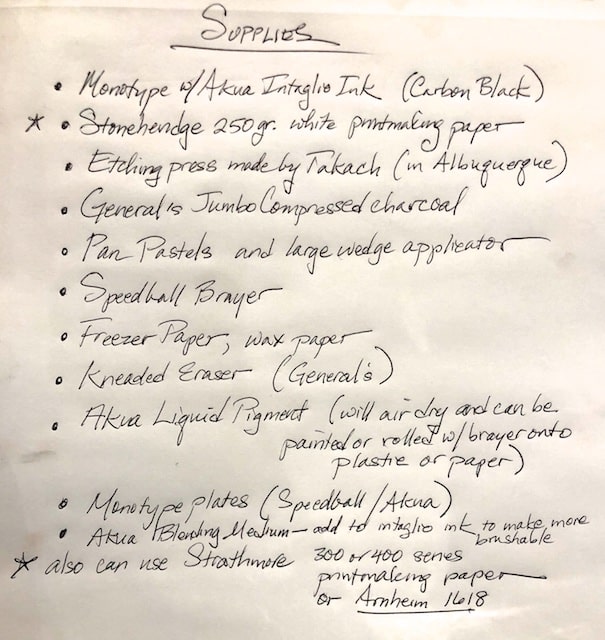 SUPPLIES
• Monotype w/Akua Intaglio Ink (Carbon Black)
* • Stonehendge 250gr. white printmaking paper
• Etching press made by Takach (in Albuquerque)
• General's Jumbo Compressed charcoal
• Pan Pastels and large wedge applicator
• Speedball Brayer
• Freezer Paper, wax paper
• Kneaded Eraser (General's)
• Akua Liquid Pigment (will air dry and can be
painted or rolled w/brayer onto
plastic or paper)
• Monotype plates (Speedball/Akua)
• Akua Blending Medium – add to intaglio ink to make more
brushable
* also can use Strathmore 300 or 400 series
printmaking paper
or Arnheim 1618